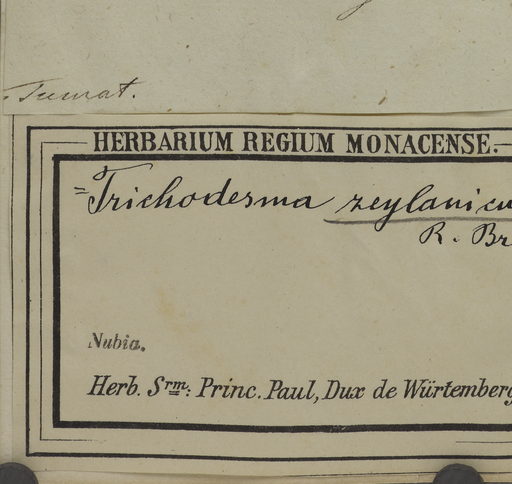 Tumat.
HERBARIUM REGIUM MONACENSE.
=Trichodesma zeylanicu
R. Br
Nubia.
Herb. Srm: Princ. Paul, Dux de Würtemberg